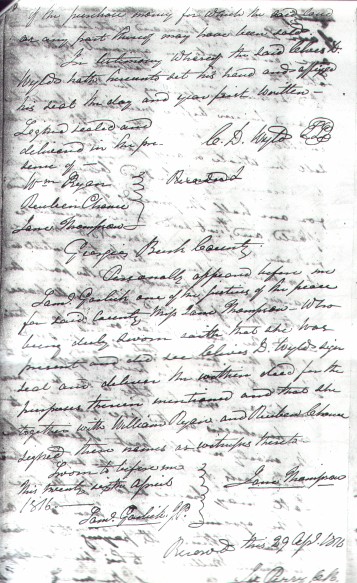 of the purchase money for which the said land
or any part thereof may have been sold
In testimony Whereof the said Cleaves D.
Wylds hath hereunto set his hand and affixed
his seal the day and year first written –
Signed sealed and
delivered in the pre-
sence of – C. D. Wylds
Wm Ryan
Reuben Chance
Jane Thompson
Georgia, Burk County
Personally appeared before me
Saml Garlick one of the justices of the peace
for said County Miss Jane Thompson – Who
being duly sworn saith that she was
present and did see D. Wylds sign
seal and deliver the within deed for the
purposes therein mentioned and that she
together with William Ryan and Reuben Chance
signed their names as witness thereto
Sworn to before me
this twenty sixth april Jane Thompson
1816
Saml Garlick J.P.
Recorded this 29 Apl. 1816